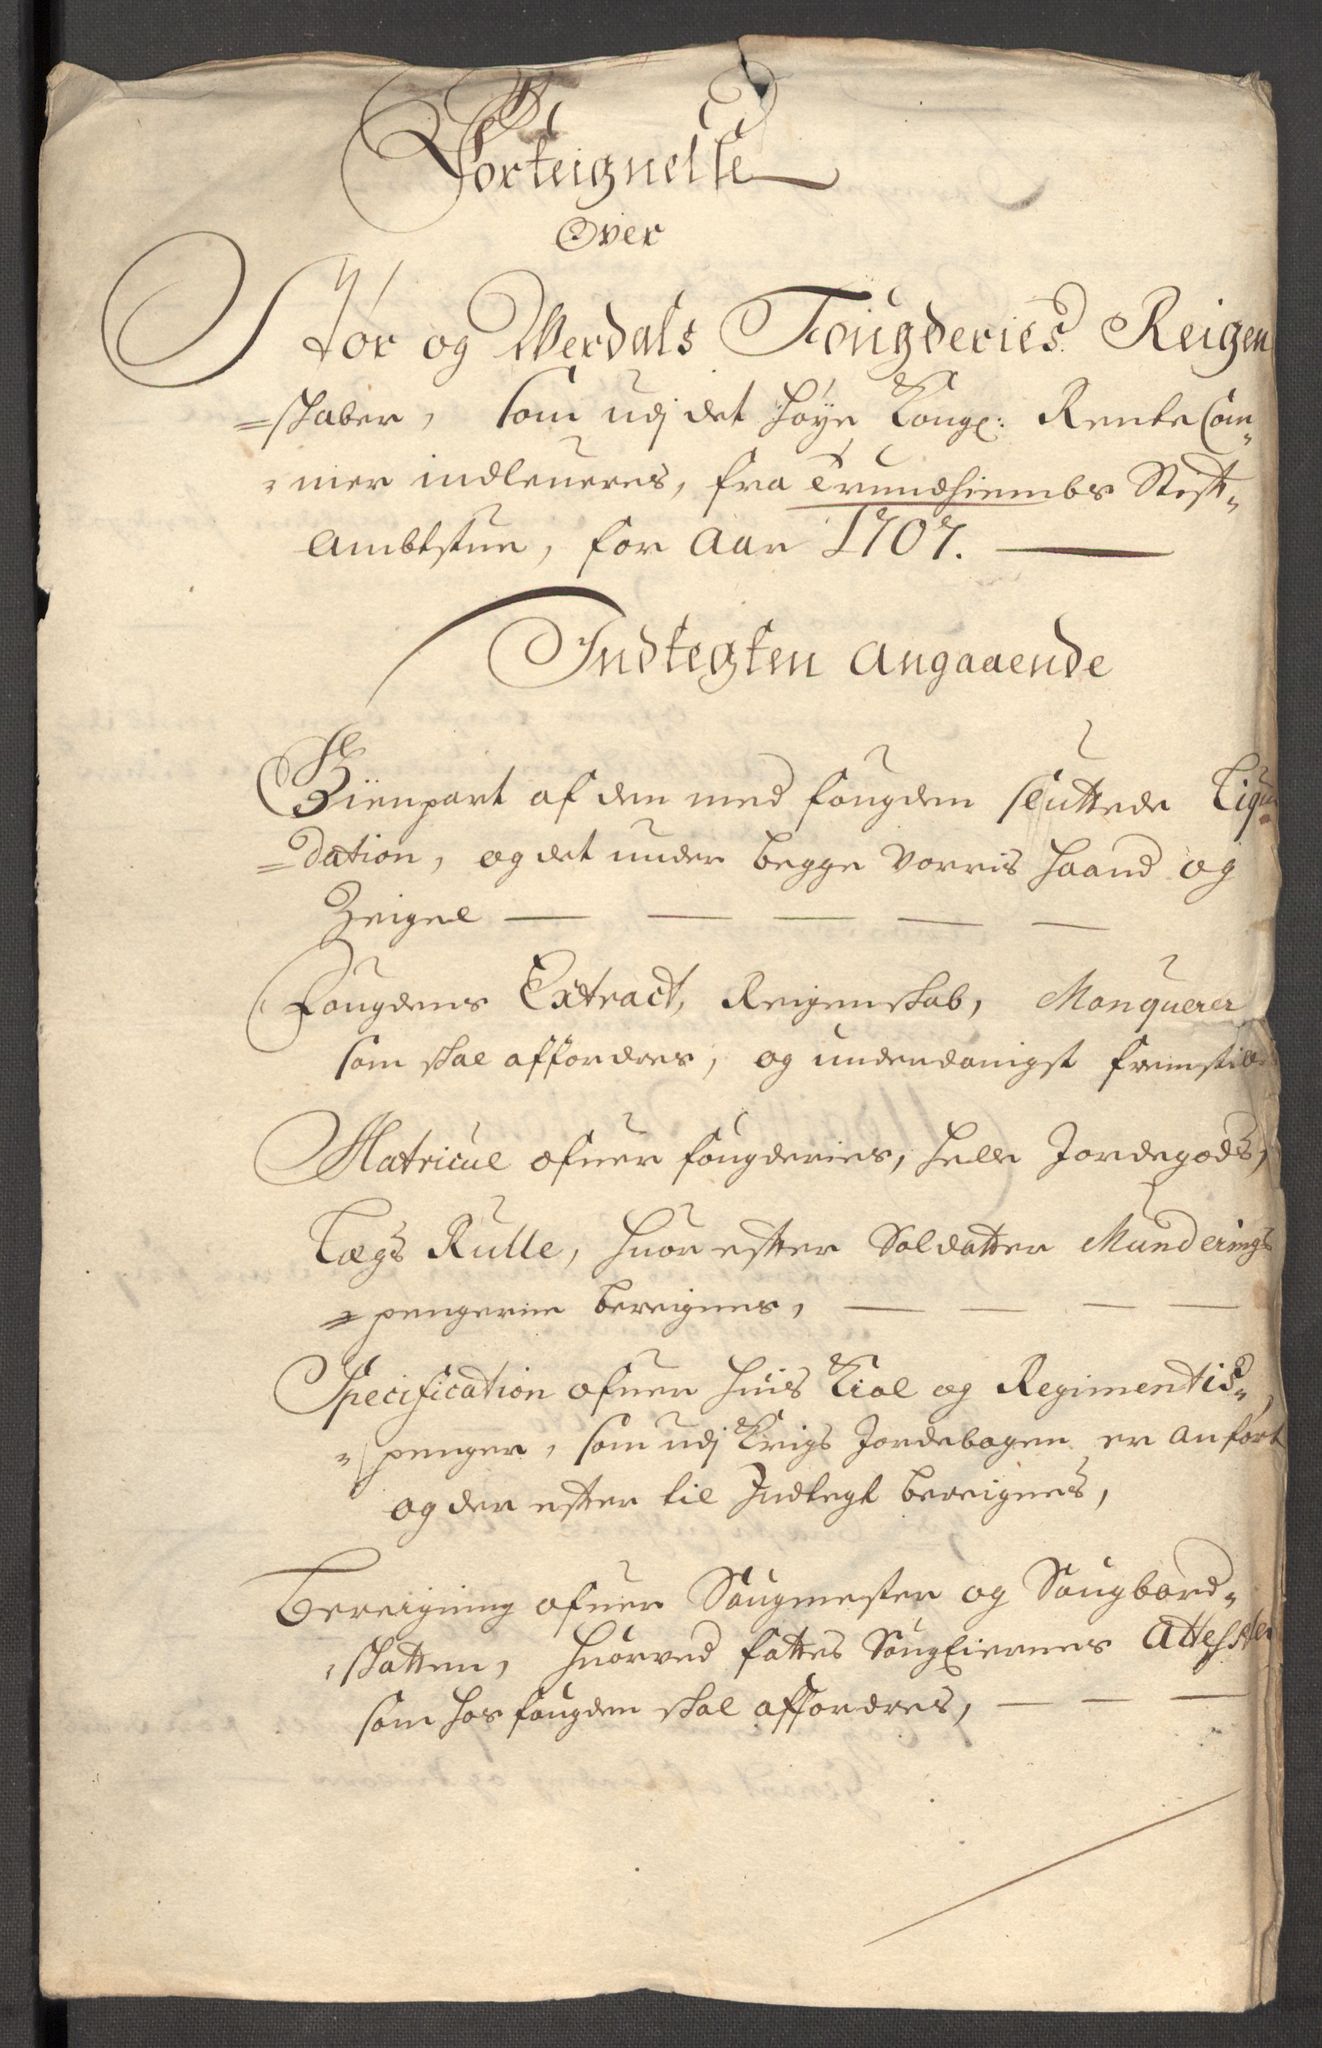 Forteignelse
Over
Stør og Werdals Fougderies Reigen
=skaber, som udj det høye Kongl: Rente Cam-
mer indleueres, fra Trundhiembs Stift-
Ambtstue, for Aar 1707.
Indtegten Angaaende
Gienpart af den med fougden sluttede Liqui-
=dation, og det under begge vorris Haand og
Zeigel
Fougdens Extract, Reigenskab, Manquerer
som skal affordres, og underdanigst fremstilles
Matricul ofuer fougderies, Helle Jordegods,
Lægs Rulle, huor efter Soldatter Munderings
=pengerne bereignes,
Specification ofuer huis Kiøl og Regimentis-
penger, som udj Krigs Jordebogen er anført
og der efter til Indtegt bereignes,
Bereigning ofuer Saugmester og Saugbord-
skatten, huorved fattes Saug Eiernes Attester
som hos fougden skal affordres,